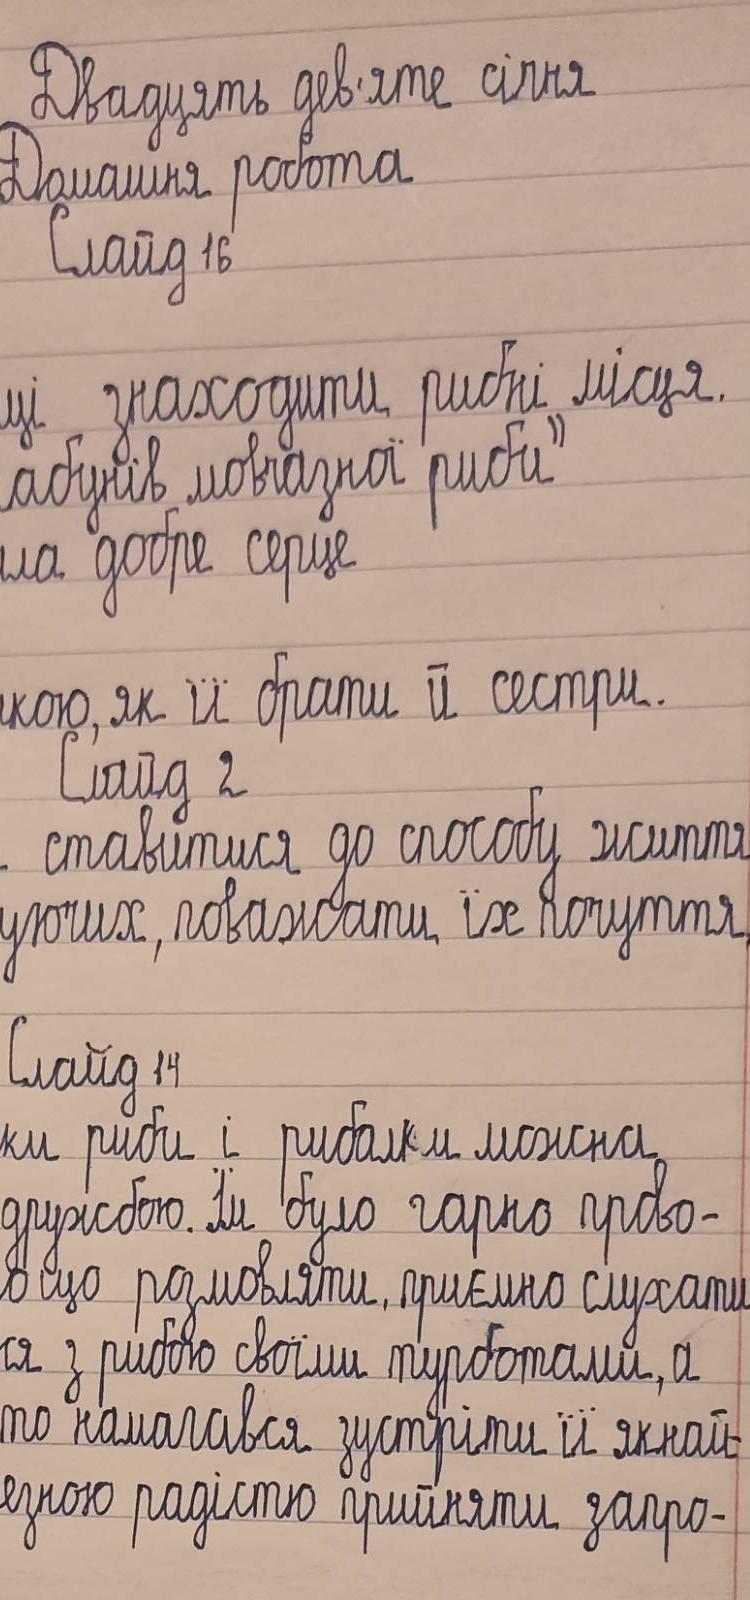 Двадцять дев'яте січня
Домашня робота
Слайд 16
ці знаходити рибні місця.
абунів мовчазної риби"
ла добре серце
кою, як її брати й сестри.
Слайд 2
ставитися до способу життя
уючих, поважати їх почуття,
Слайд 14
ки риби і рибалки можна
дружбою. Їм було гарно прово-
о що розмовляти, приємно слухати
ся з рибою своїми турботами, а
то намагався зустріти її якнай-
езною радістю прийняти запро-